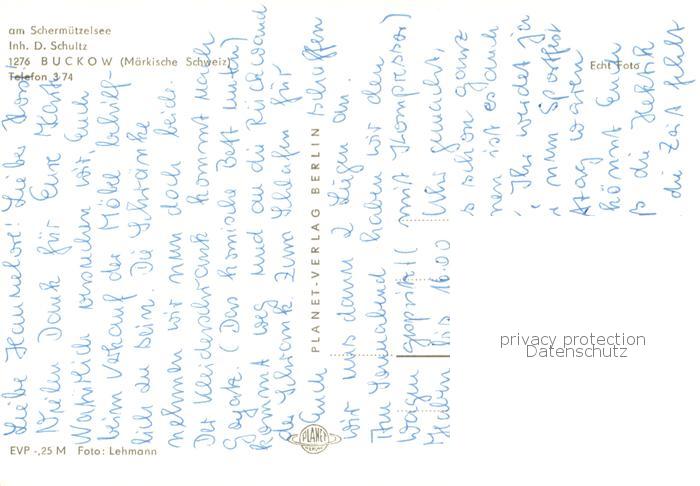 am Schermützelsee
Inh. D. Schultz
1276 BUCKOW (Märkische Schweiz)
Telefon 3 74
Echt Foto
Liebe Hannelore! Lieber Horst!
Vielen Dank für Eure Karte.
Natürlich versuchen wir, Euch
beim Verkauf der Möbel behilf-
lich zu sein. Die Schränke
nehmen wir nun doch beide.
Der Kleiderschrank kommt nach
(Das komische Bett unten)
kommt weg und an die Rückwand
der Schrank. Zum Schlafen für
Euch schaffen
wir uns dann 2 Liegen an.
Am Sonnabend haben wir den
Wagen gespritzt (mit Kompressor)
Haben bis 16.00 Uhr gemacht,
schon ganz
nen ist es auch
Ihr werdet ja
nun Sportfest
tag warten
könnt Euch
die Hektik
die Zeit fehlt
PLANET-VERLAG BERLIN
PLANET
VERLAG
EVP -,25 M Foto: Lehmann
privacy protection
Datenschutz